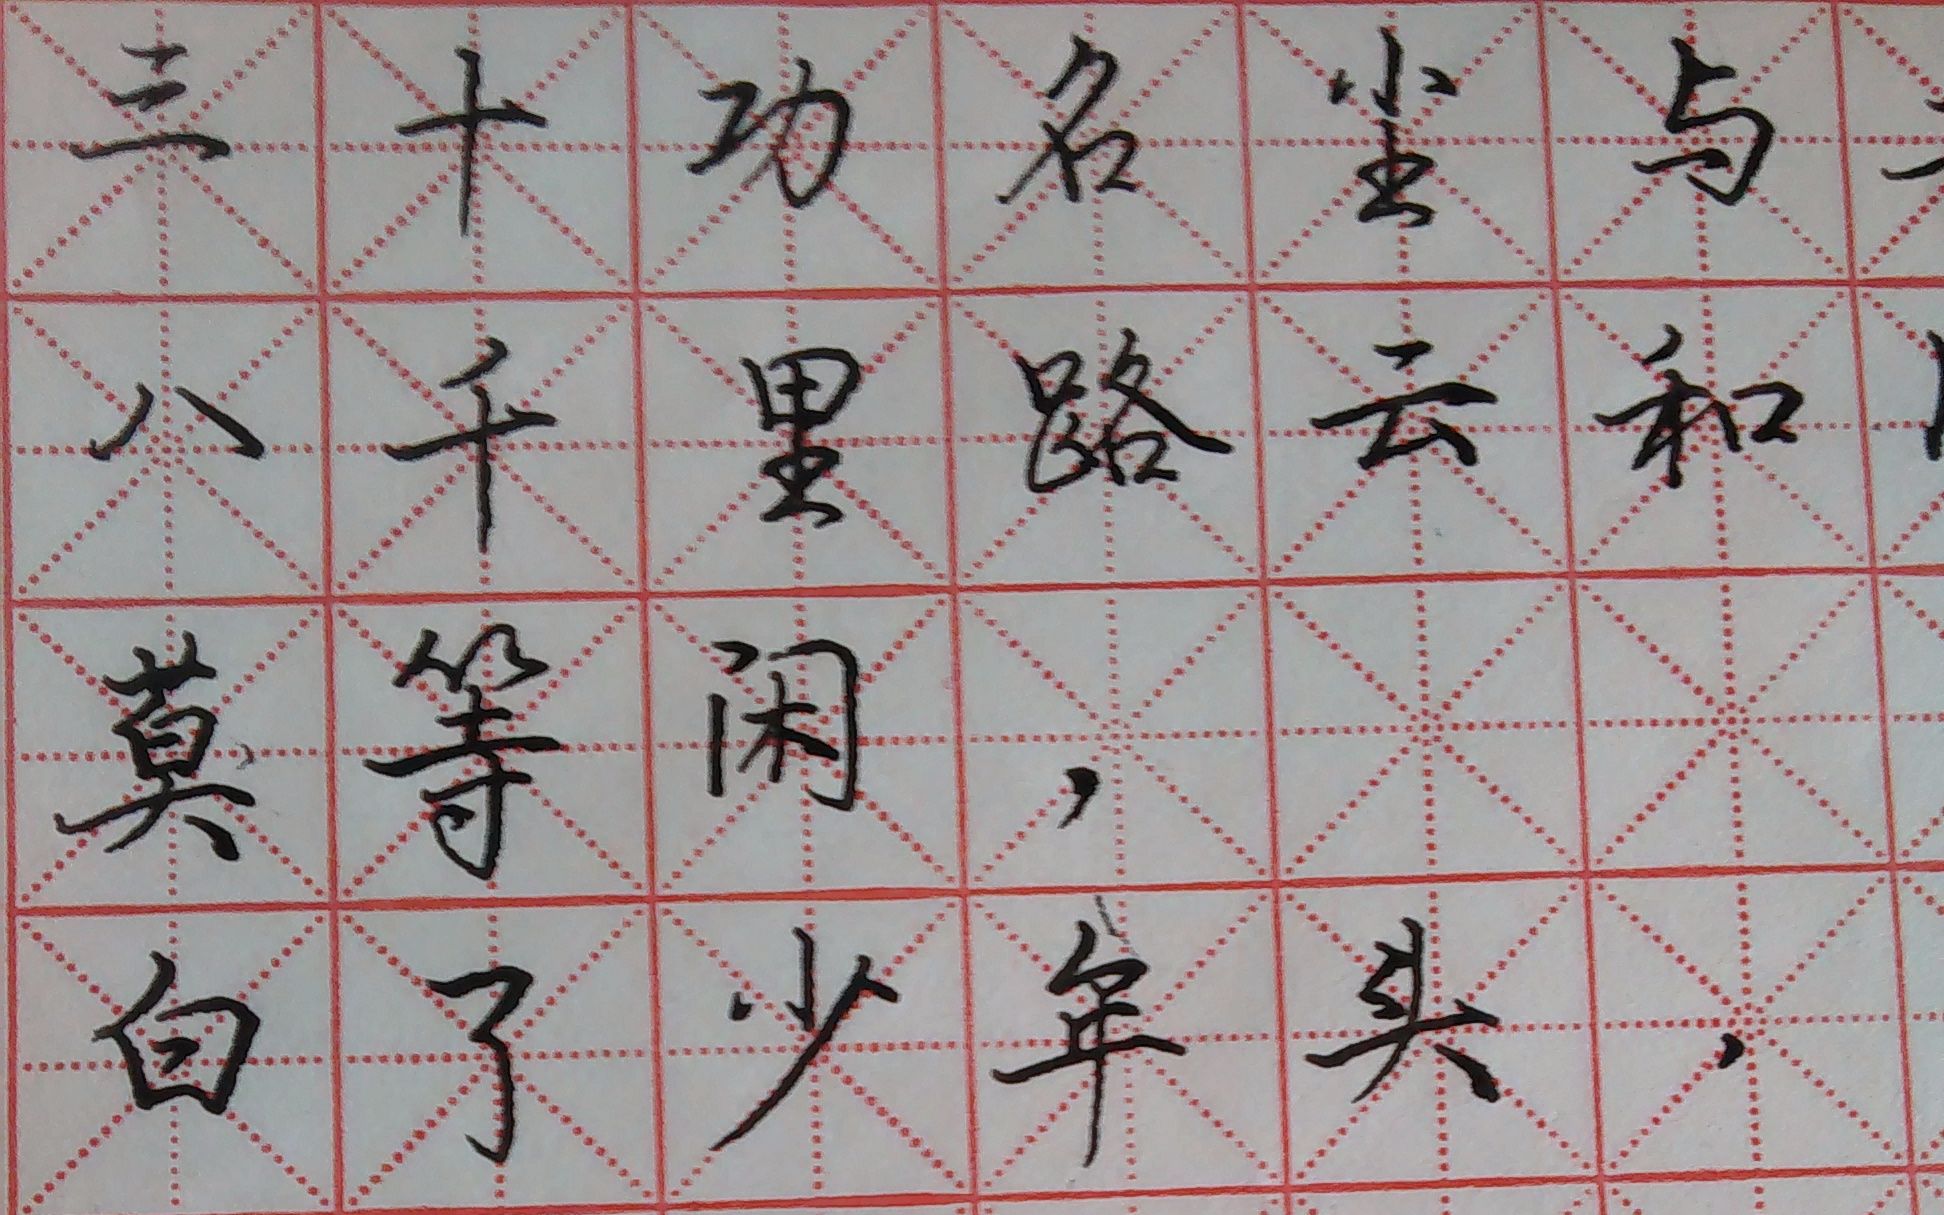 三十功名尘与
八千里路云和
莫等闲，
白了少年头，